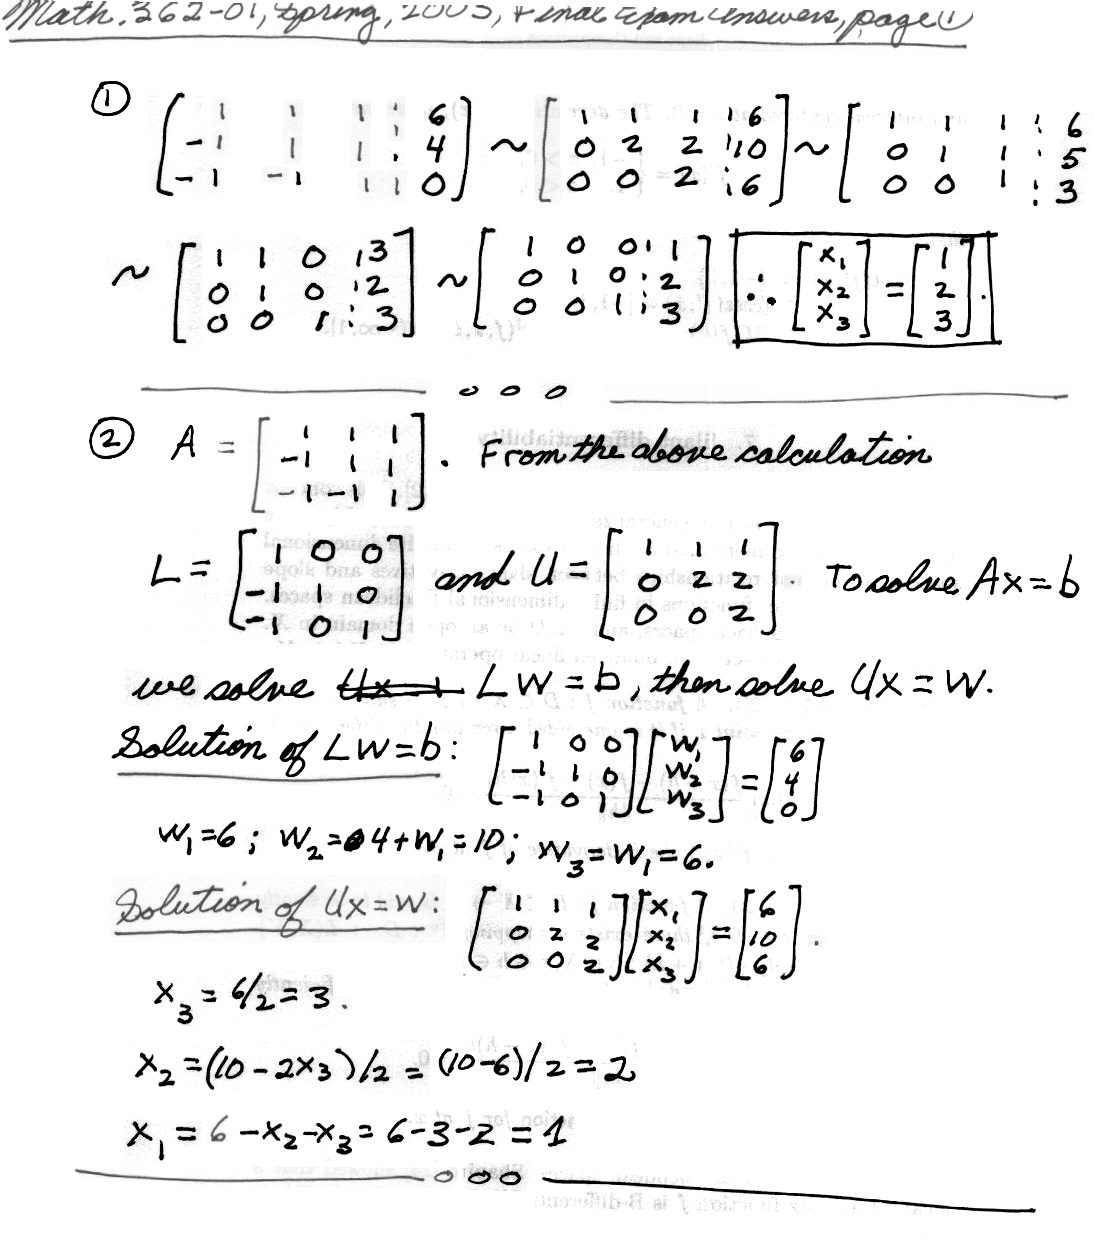 Math. 362-01, Spring, 2005, Final Exam Answers, page 1
① [1 1 1 ⋮ 6; -1 1 1 ⋮ 4; -1 -1 1 ⋮ 0] ~ [1 1 1 ⋮ 6; 0 2 2 ⋮ 10; 0 0 2 ⋮ 6] ~ [1 1 1 ⋮ 6; 0 1 1 ⋮ 5; 0 0 1 ⋮ 3
~ [1 1 0 ⋮ 3; 0 1 0 ⋮ 2; 0 0 1 ⋮ 3] ~ [1 0 0 ⋮ 1; 0 1 0 ⋮ 2; 0 0 1 ⋮ 3] ∴ [x₁; x₂; x₃] = [1; 2; 3].
② A = [1 1 1; -1 1 1; -1 -1 1]. From the above calculation
L = [1 0 0; -1 1 0; -1 0 1] and U = [1 1 1; 0 2 2; 0 0 2]. To solve Ax = b
we solve LW = b, then solve Ux = w.
Solution of LW = b: [1 0 0; -1 1 0; -1 0 1][w₁; w₂; w₃] = [6; 4; 0]
w₁ = 6; w₂ = 4 + w₁ = 10; w₃ = w₁ = 6.
Solution of Ux = w: [1 1 1; 0 2 2; 0 0 2][x₁; x₂; x₃] = [6; 10; 6].
x₃ = 6/2 = 3.
x₂ = (10 - 2x₃)/2 = (10-6)/2 = 2
x₁ = 6 - x₂ - x₃ = 6-3-2 = 1